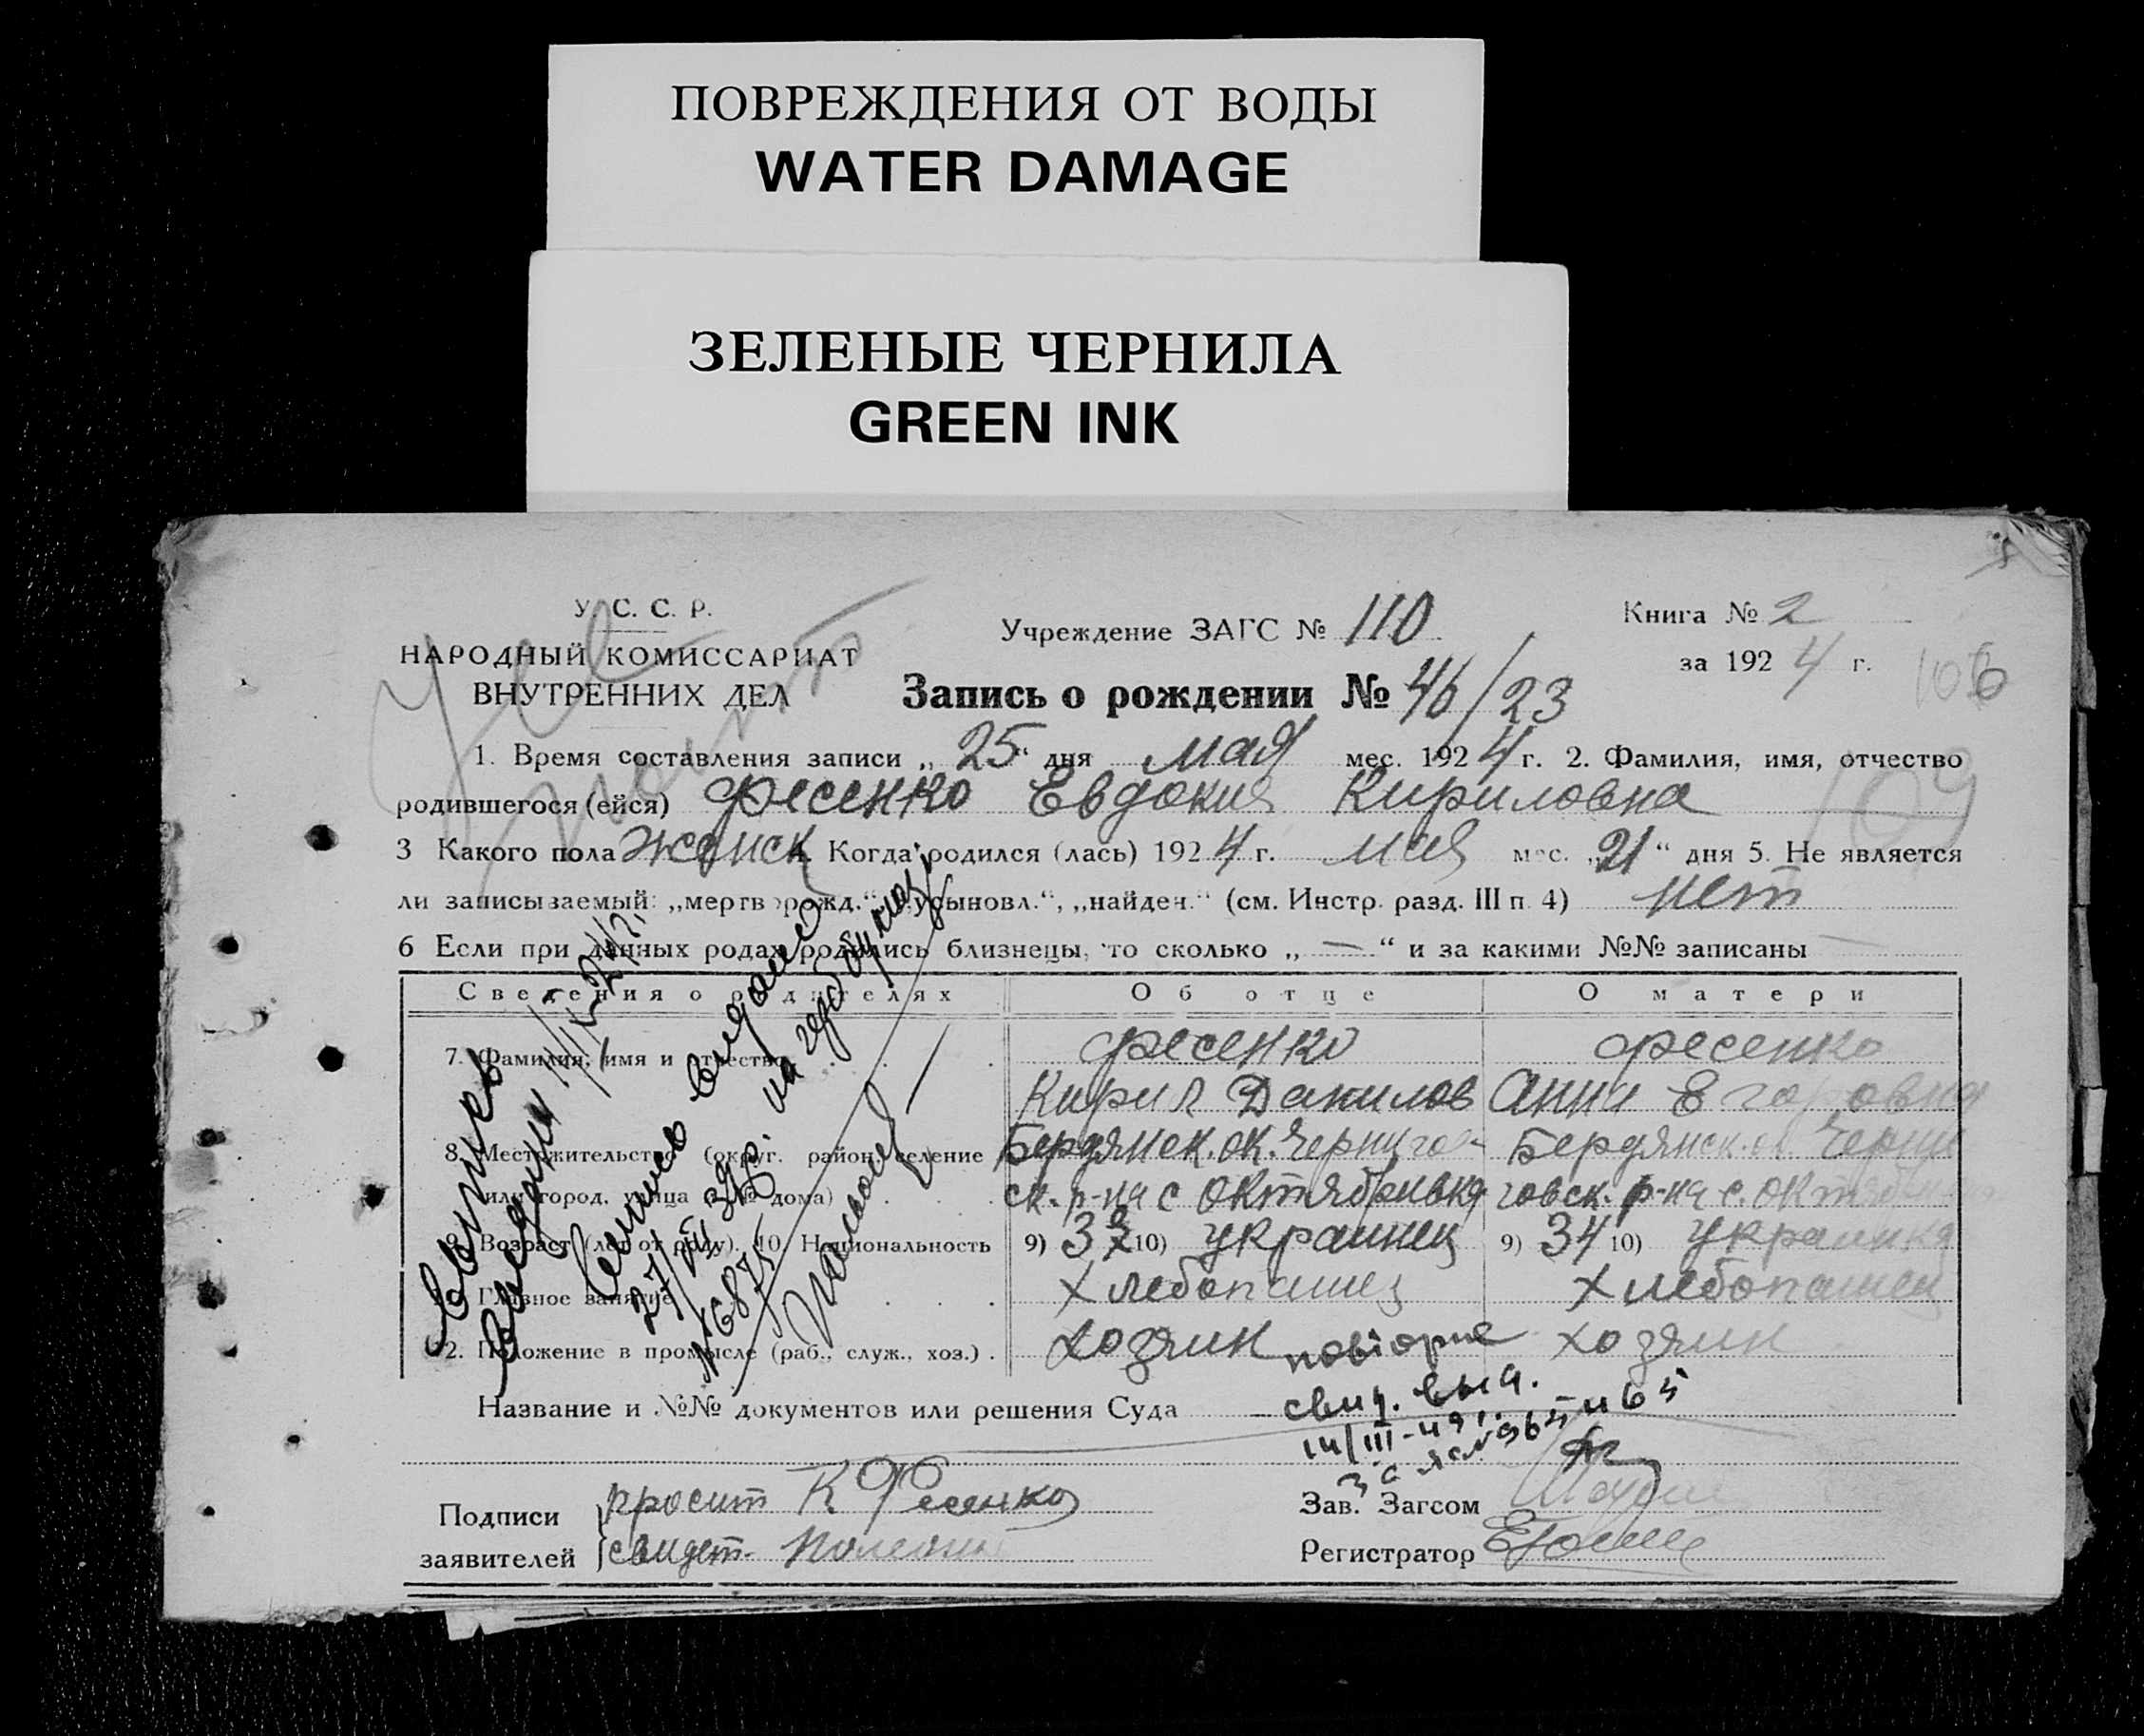 ПОВРЕЖДЕНИЯ ОТ ВОДЫ
WATER DAMAGE
ЗЕЛЕНЫЕ ЧЕРНИЛА
GREEN INK
У. С. С. Р.
НАРОДНЫЙ КОМИССАРИАТ
ВНУТРЕННИХ ДЕЛ
Учреждение ЗАГС № 110
Книга № 2
за 1924 г.
106
109
Запись о рождении № 46/23
1. Время составления записи „25“ дня мая мес. 1924 г. 2. Фамилия, имя, отчество
родившегося (ейся) Фесенко Евдокия Кириловна
3 Какого пола женск 4. Когда родился (лась) 1924 г. мая мес. „21“ дня 5. Не является
ли записываемый: „мертворожд.“ „усыновл.“, „найден.“ (см. Инстр. разд. III п 4) нет
6 Если при данных родах родились близнецы, то сколько „—“ и за какими №№ записаны —
Сведения о родителях Об отце О матери
7. Фамилия, имя и отчество Фесенко Фесенко
Кирил Данилов Анна Егоровна
8. Местожительство (округ. район, селение Бердянск. ок. Чернигов- Бердянск. ок Черни
или город, улица и № дома) ск. р-на с Октябривка говск. р-на с. Октя
9. Возраст (лет от роду). 10. Национальность 9) 32 10) украинец 9) 34 10) украинка
Главное занятие хлебопашец хлебопашец
12. Положение в промысле (раб., служ., хоз.) хозяин хозяин
повторне
свид. выд.
14/III-49 г.
Название и №№ документов или решения Суда
Подписи заявителей
просит К Фесенко
свидет.
Зав. Загсом
Регистратор